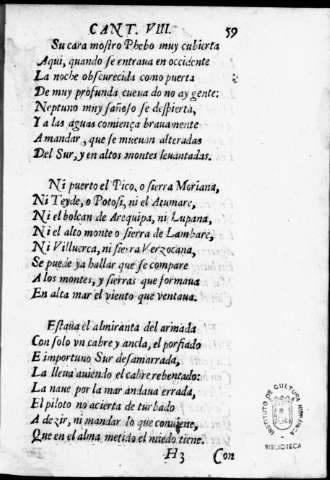 CANT. VIII. 59
Su cara mostro Phebo muy cubierta
Aqui, quando se entraua en occidente
La noche obscurecida como puerta
De muy profunda cueua do no ay gente:
Neptuno mny sañoso se despierta,
Y a las aguas comiença brauamente
A mandar, que se mueuan alteradas
Del Sur, y en altos montes leuantadas.
Ni puerto el Pico, o sierra Moriana,
Ni Teyde, o Potosi, ni el Atumare,
Ni el bolcan de Arequipa, ni Lupana,
Ni el alto monte o sierra de Lambare,
Ni Villuerca, ni sierra Verzocana,
Se puede ya hallar que se compare
A los montes, y sierras que formaua
En alta mar el viento que ventaua.
Estaua el almiranta del armada
Con solo vn cabre y ancla, el porfiado
E importuno Sur desamarrada,
La lleua auiendo el cabre rebentado:
La naue por la mar andaua errada,
El piloto no acierta de turbado
A dezir, ni mandar lo que conuiene,
Que en el alma metido el miedo tiene.
H3 Con
INSTITUTO DE CULTURA HISPANICA
BIBLIOTECA